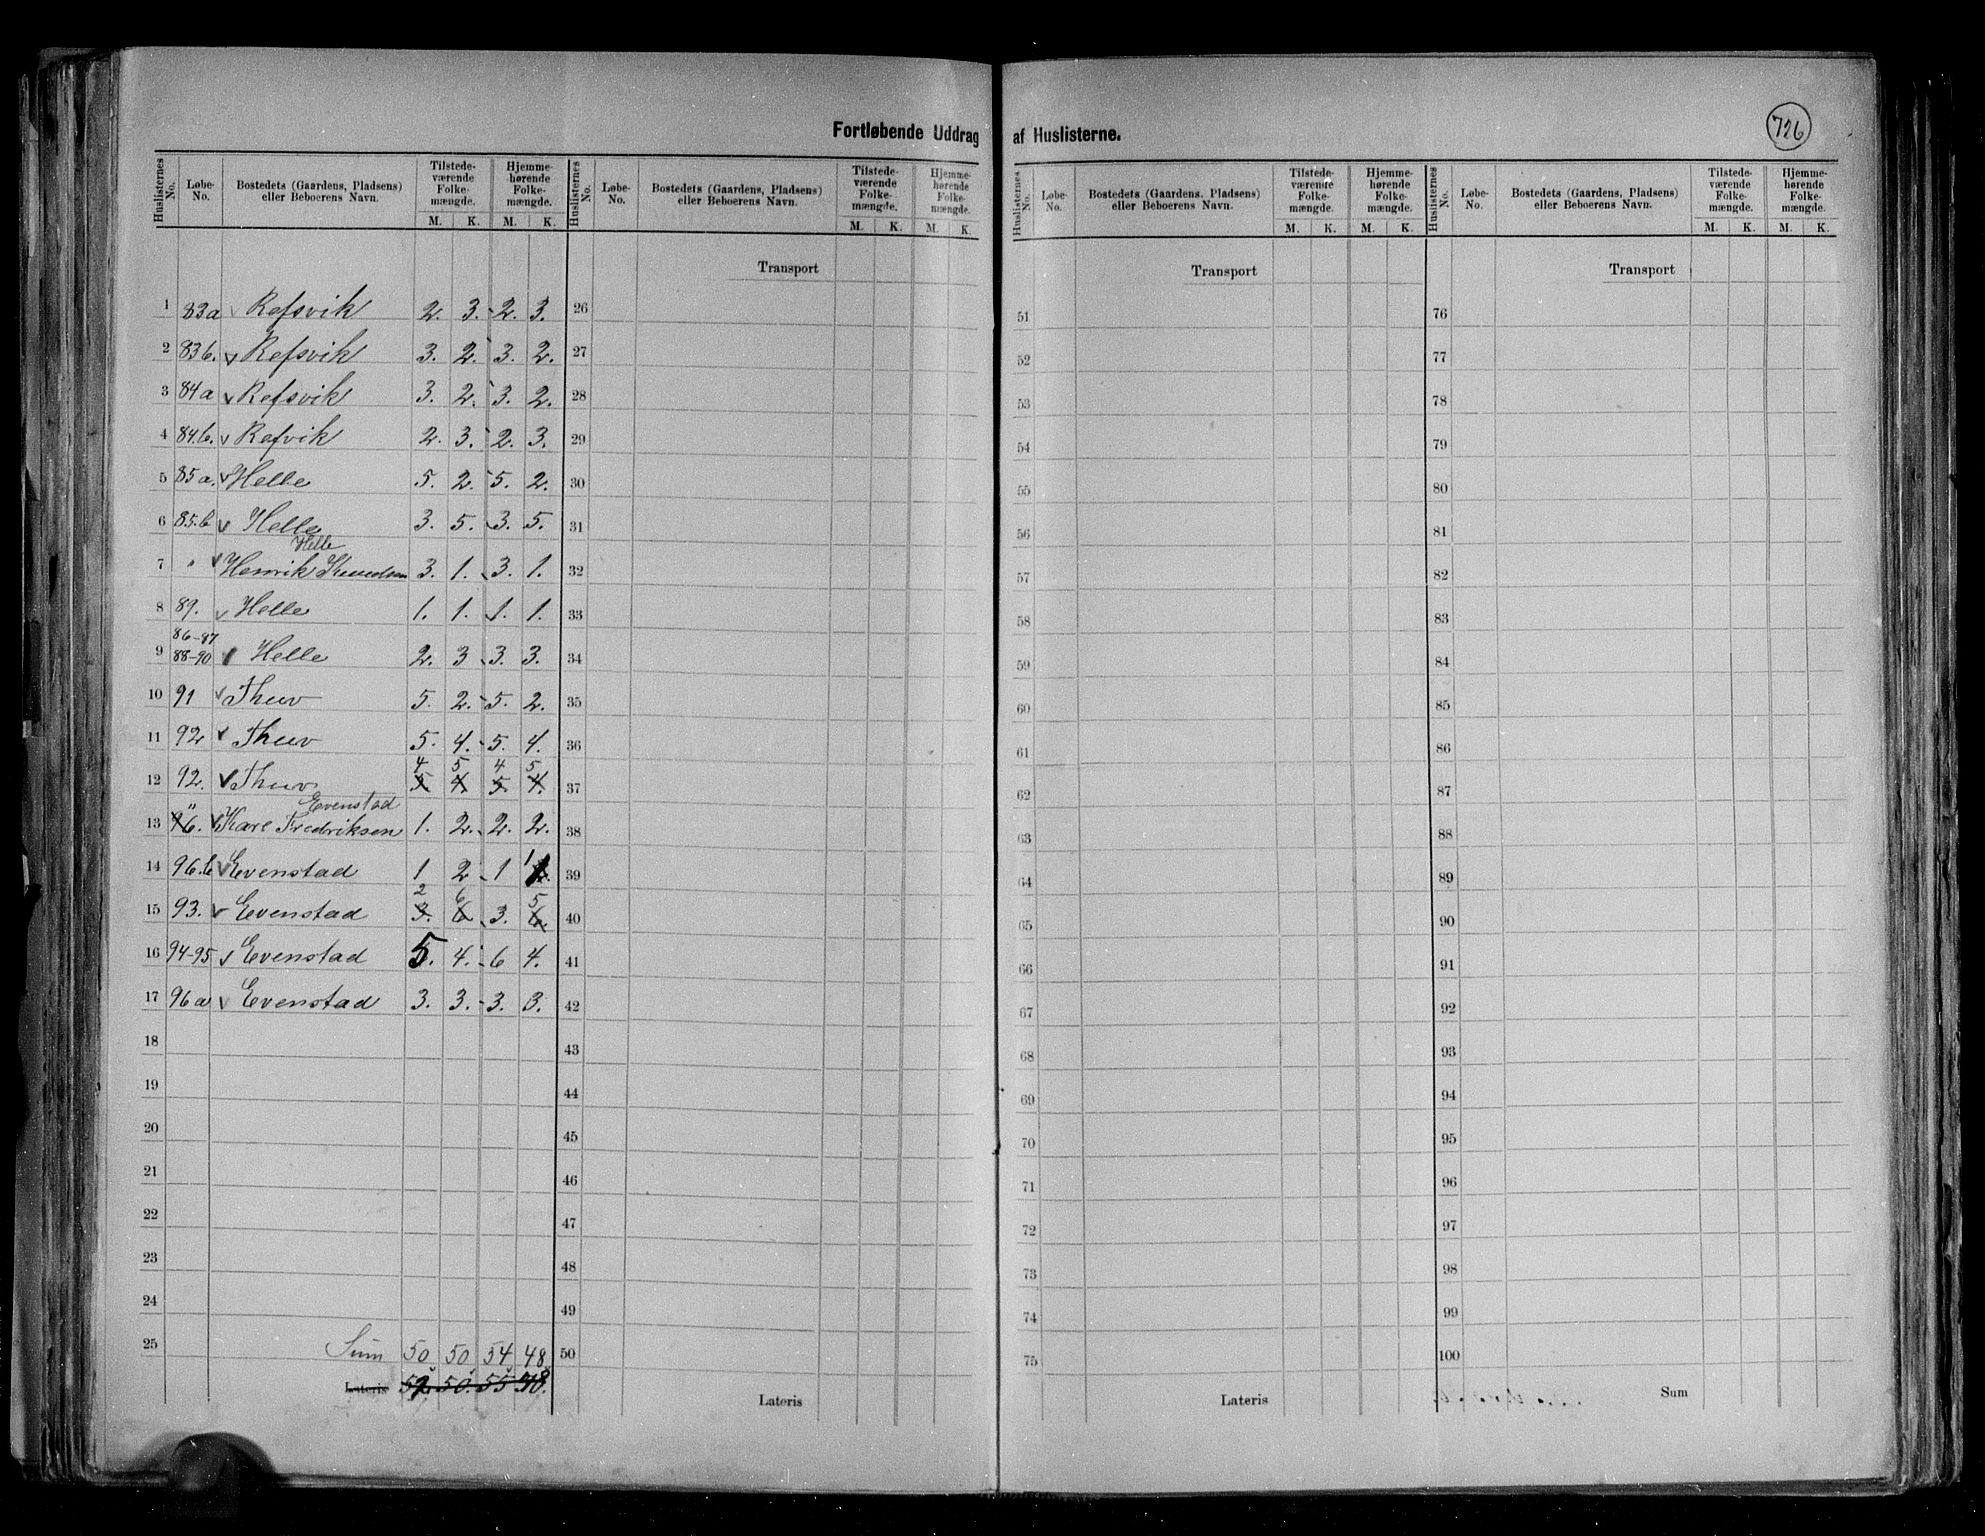 Fortløbende Uddrag af Huslisterne.
726
Huslisternes No. Løbe-No. Bostedets (Gaardens, Pladsens) eller Beboerens Navn. Tilstede-værende Folke-mængde. M. K. Hjemme-hørende Folke-mængde. M. K.
1 83a Refsvik 2. 3. 2. 3.
2 83b. Refsvik 3. 2. 3. 2.
3 84a Refsvik 3. 2. 3. 2.
4 84.b. Refvik 2. 3. 2. 3.
5 85a. Helle 5. 2. 5. 2.
6 85.b Helle 3. 5. 3. 5.
Helle
7 " Henrik Knudsen 3. 1. 3. 1.
8 89. Helle 1. 1. 1. 1.
86-87
9 88-90 Helle 2. 3 3. 3.
10 91 Thuv 5. 2. 5. 2.
11 92 Thuv 5. 4. 5. 4.
4 5 4 5
12 92. Thuv 5. 4. 5. 4.
Evenstad
13 96. " Karl Fredriksen 1. 2. 2. 2.
14 96.b Evenstad 1 2 1 1
2 6 5
15 93. Evenstad 3. 6. 3. 6.
16 94-95 Evenstad 5. 4. 6 4.
17 96a Evenstad 3. 3. 3. 3.
18
19
20
21
22
23
24
25 Sum 50 50 54 48
Lateris 50. 55
Huslisternes No. Løbe-No. Bostedets (Gaardens, Pladsens) eller Beboerens Navn. Tilstede-værende Folke-mængde. M. K. Hjemme-hørende Folke-mængde. M. K.
Transport
26
27
28
29
30
31
32
33
34
35
36
37
38
39
40
41
42
43
44
45
46
47
48
49
50
Lateris
Huslisternes No. Løbe-No. Bostedets (Gaardens, Pladsens) eller Beboerens Navn. Tilstede-værende Folke-mængde. M. K. Hjemme-hørende Folke-mængde. M. K.
Transport
51
52
53
54
55
56
57
58
59
60
61
62
63
64
65
66
67
68
69
70
71
72
73
74
75
Lateris
Huslisternes No. Løbe-No. Bostedets (Gaardens, Pladsens) eller Beboerens Navn. Tilstede-værende Folke-mængde. M. K. Hjemme-hørende Folke-mængde. M. K.
Transport
76
77
78
79
80
81
82
83
84
85
86
87
88
89
90
91
92
93
94
95
96
97
98
99
100
Sum